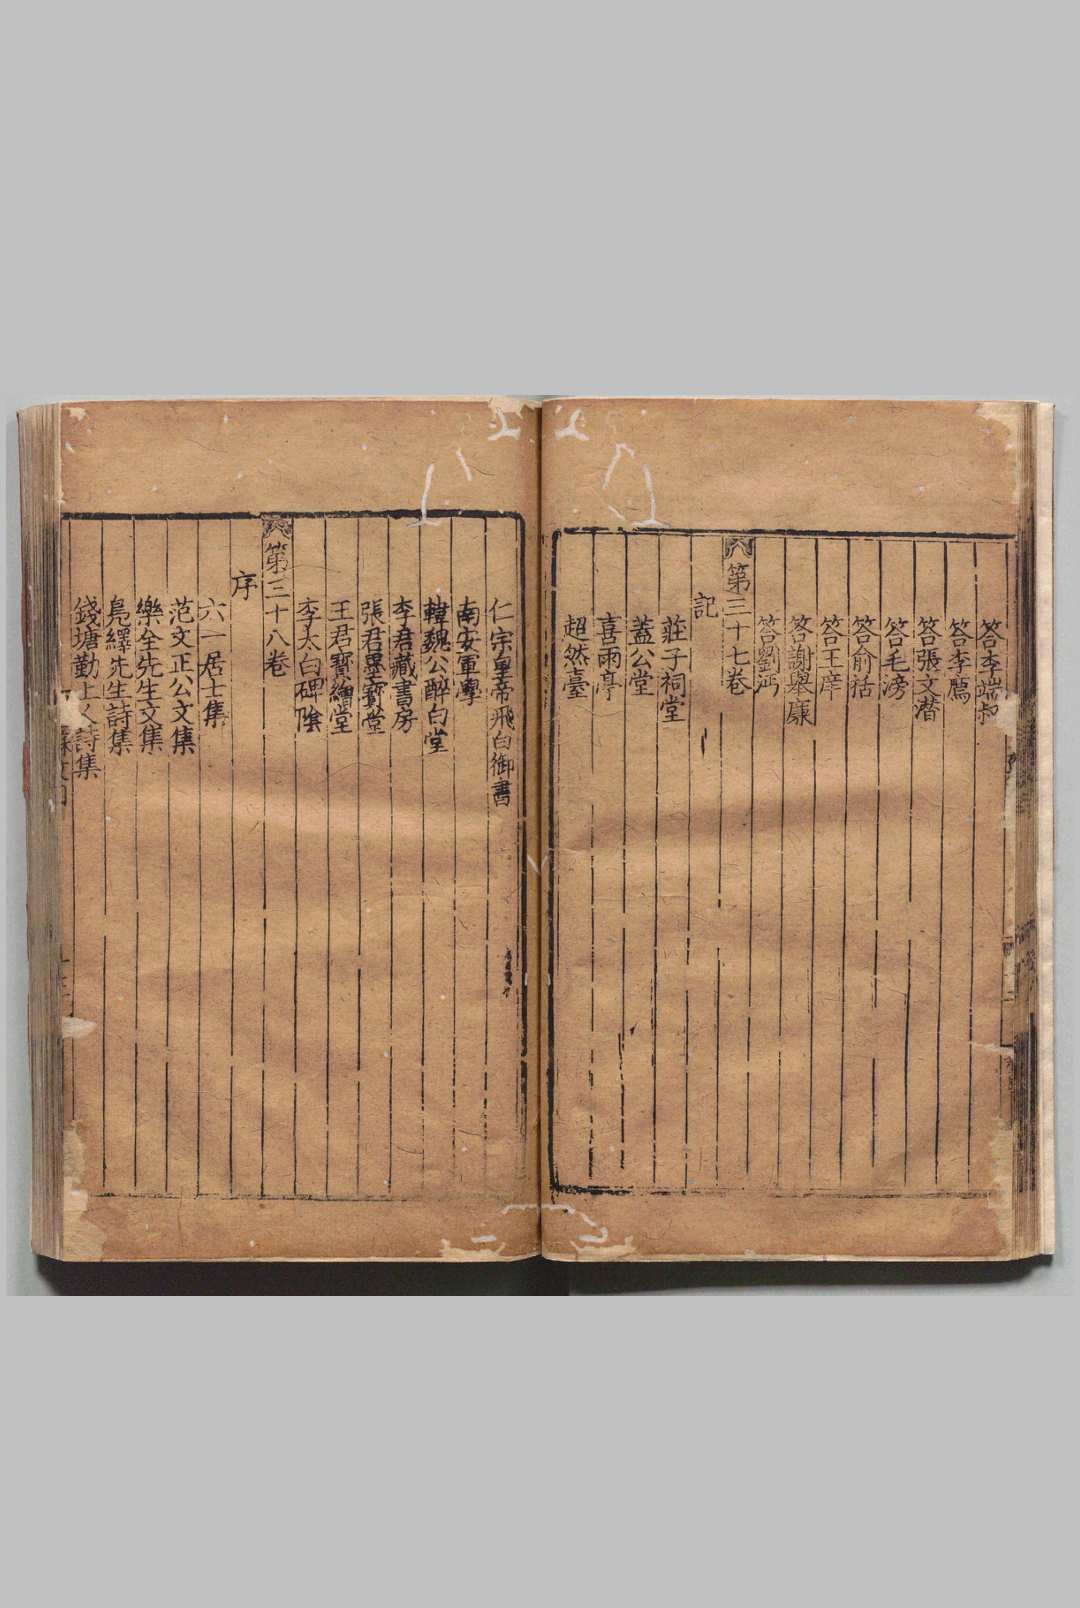 答李端叔
答李廌
答張文潛
答毛滂
答俞括
答王庠
答謝舉廉
答劉沔
第三十七卷
記
莊子祠堂
蓋公堂
喜雨亭
超然臺
仁宗皇帝飛白御書
南安軍學
韓魏公醉白堂
李君藏書房
張君墨寶堂
王君寶繪堂
李太白碑陰
第三十八卷
序
六一居士集
范文正公文集
樂全先生文集
鳧繹先生詩集
錢塘勤上人詩集